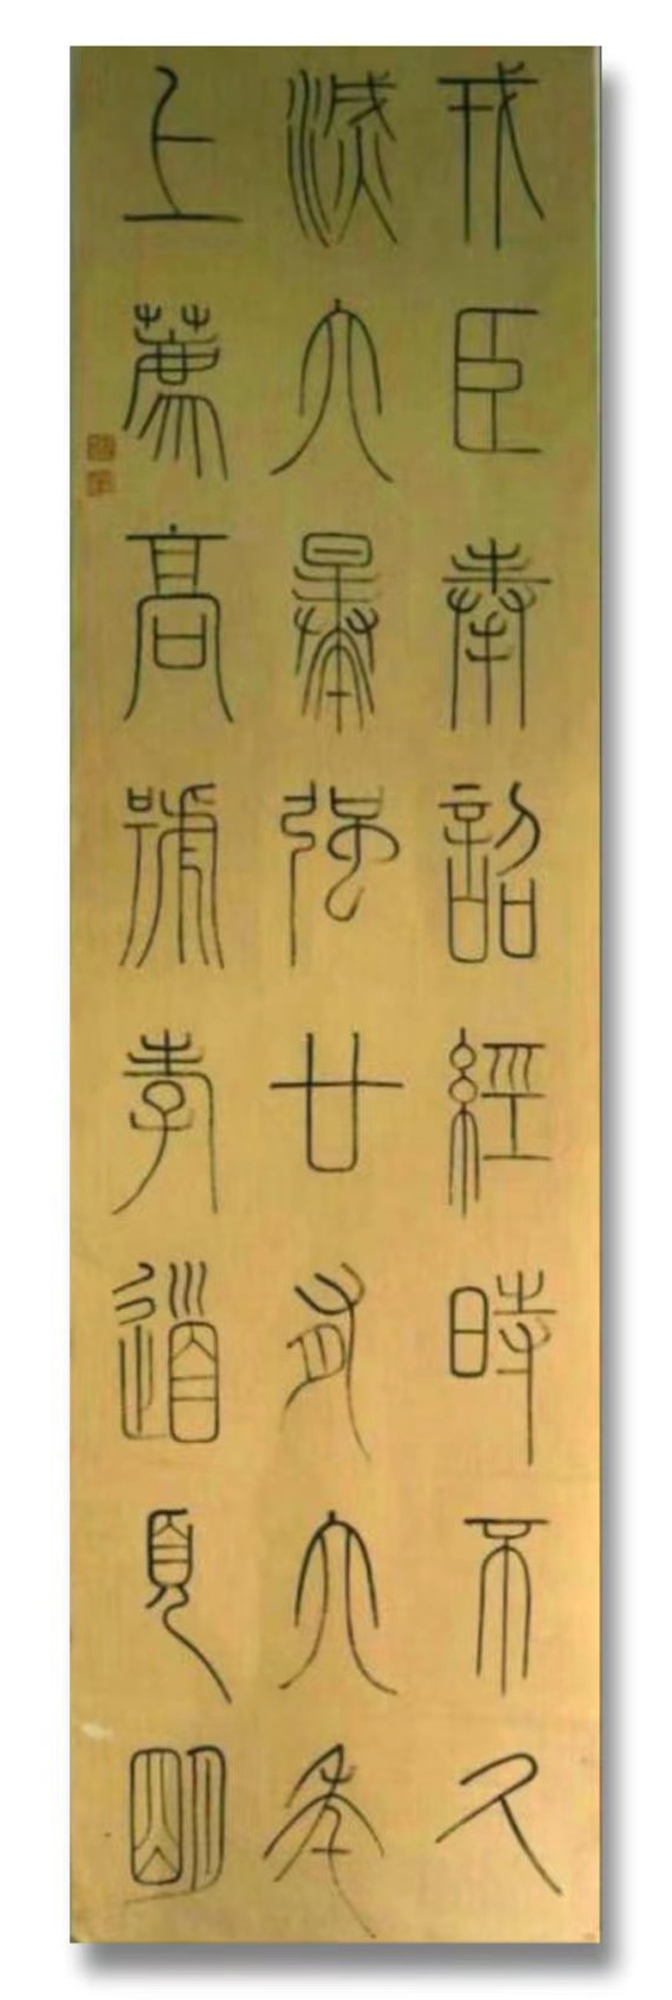 戎臣奉詔經時不久
滅六暴強廿有六年
上薦高號孝道顯明